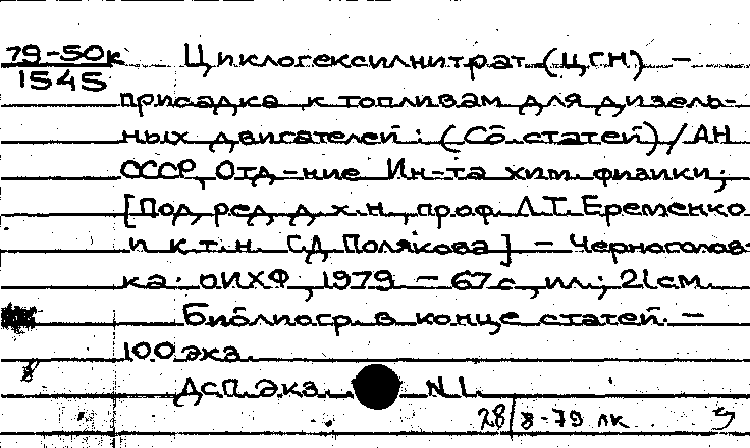 79-50к
1545
Циклогексилнитрат (ЦГН) -
присадка к топливам для дизель-
ных двигателей : (Сб. статей) / АН
СССР, Отд-ние Ин-та хим. физики ;
[Под ред. д. х. н., проф. Л.Т. Еременко
и к.т.н. Г.Д. Полякова] - Черноголов-
ка : ОИХФ, 1979 - 67 с., ил ; 21 см.
Библиогр. в конце статей. -
100 экз.
Дсп. экз. N 1.
28/8-79 лк